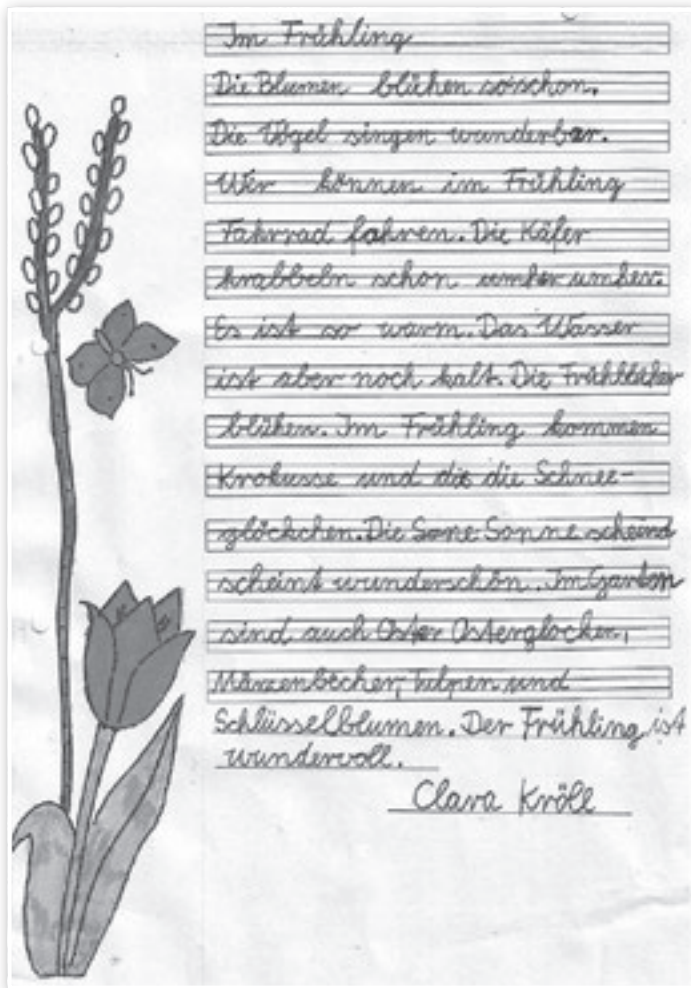 Im Frühling
Die Blumen blühen so schon.
Die Vögel singen wunderbar.
Wir können im Frühling
Fahrrad fahren. Die Käfer
krabbeln schon umher umher.
Es ist so warm. Das Wasser
ist aber noch kalt. Die
blühen. Im Frühling kommen
Krokusse und die die Schnee-
glöckchen. Die Sonne scheind
scheint wunderschön. Im Garten
sind auch Oster Osterglocken,
Märzenbecher, Tulpen und
Schlüsselblumen. Der Frühling ist
wundervoll.
Clara Kröll